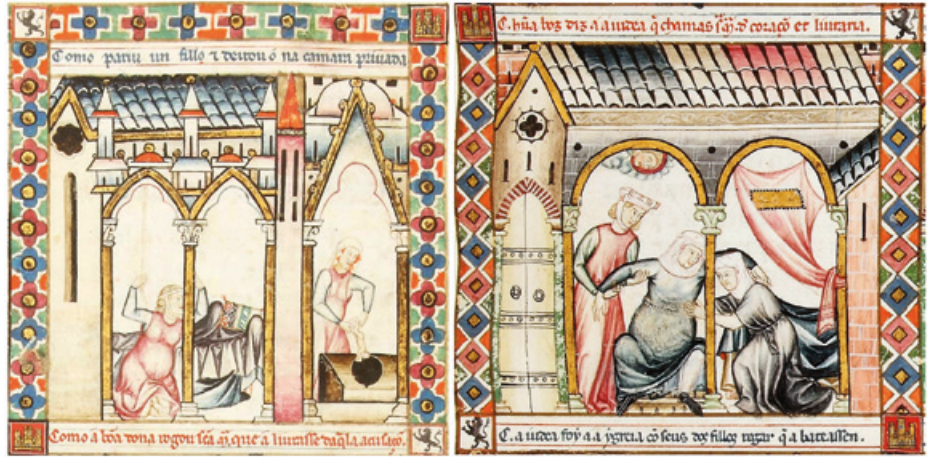 Como pariu un fillo ⁊ deitou ó na camara priuada
Como a bõa dona rogou sc̃a Mª, que a liurasse daq̃la acusaçõ.
C. hũa boz diz a a iudea q̃ chamas sc̃a Mª. de coraçõ et liuraria.
C. a iudea foy a a ygreia cõ seus dos fillos rogar q̃ a bateassen.